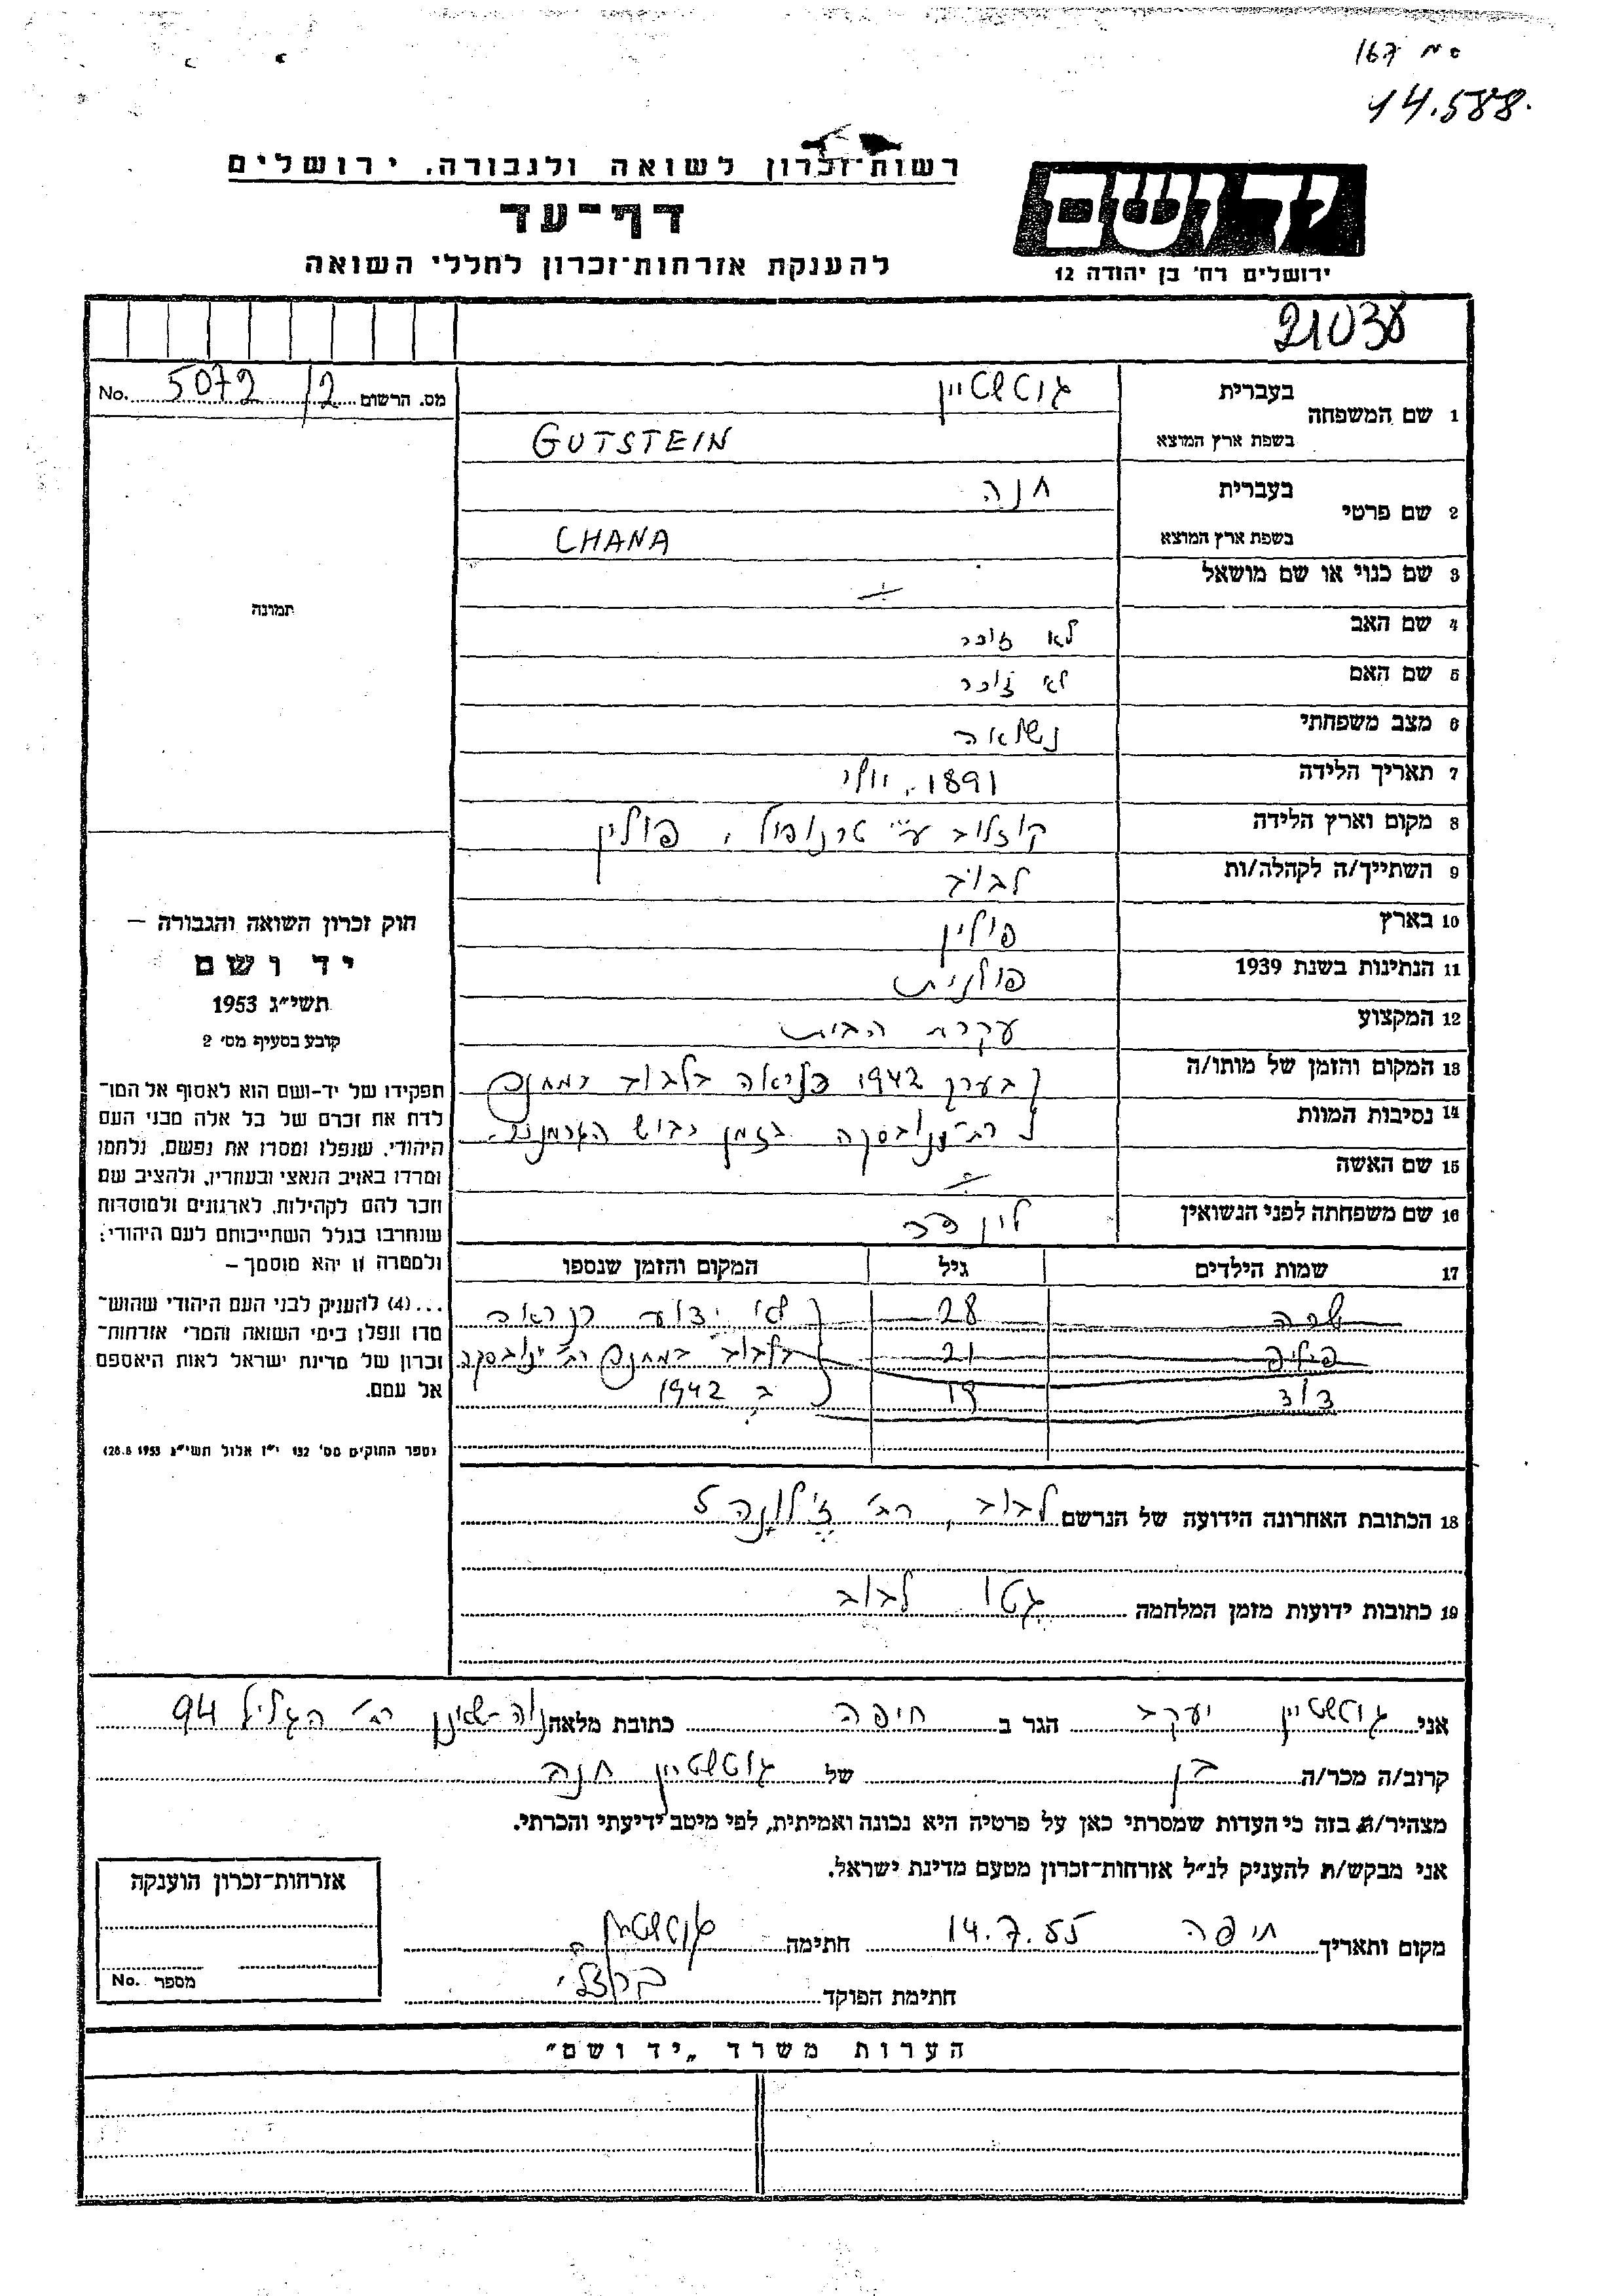 סמ 167
14.588.
רשות־זכרון לשואה ולגבורה, ירושלים
דף־עד
להענקת אזרחות־זכרון לחללי השואה
יד ושם
ירושלים רח' בן יהודה 12
21038
מס. הרשום 5072/2 No.
1 שם המשפחה
בעברית גוטשטיין
בשפת ארץ המוצא GUTSTEIN
2 שם פרטי
בעברית חנה
בשפת ארץ המוצא CHANA
3 שם כנוי או שם מושאל
4 שם האב לא זוכר
5 שם האם לא זוכר
6 מצב משפחתי נשואה
7 תאריך הלידה 1891, יולי
8 מקום וארץ הלידה קוזלוב ע"י טרנופול, פולין
9 השתייך/ה לקהלה/ות לבוב
10 בארץ פולין
11 הנתינות בשנת 1939 פולנית
12 המקצוע עקרת הבית
13 המקום והזמן של מותו/ה בערך 1942 כנראה בלבוב במחנה
14 נסיבות המוות רח' ינובסקה בזמן כבוש הגרמנים.
15 שם האשה
16 שם משפחתה לפני הנשואין
17 שמות הילדים גיל המקום והזמן שנספו
שרה 28 לא ידוע כנראה
21 בלבוב במחנה רח' ינובסקה
דוד 19 ב 1942
תמונה
חוק זכרון השואה והגבורה –
יד ושם
תשי"ג 1953
קובע בסעיף מס' 2
תפקידו של יד-ושם הוא לאסוף אל המו־
לדת את זכרם של כל אלה מבני העם
היהודי, שנפלו ומסרו את נפשם, נלחמו
ומרדו באויב הנאצי ובעוזריו, ולהציב שם
וזכר להם לקהילות, לארגונים ולמוסדות
שנחרבו בגלל השתייכותם לעם היהודי;
ולמטרה זו יהא מוסמך –
...(4) להעניק לבני העם היהודי שהוש־
מדו ונפלו בימי השואה והמרי אזרחות־
זכרון של מדינת ישראל לאות היאספם
אל עמם.
(ספר החוקים מס' 132 י"ז אלול תשי"ג 28.8.1953)
18 הכתובת האחרונה הידועה של הנרשם לבוב, רח' ז'ילונה 5
19 כתובות ידועות מזמן המלחמה גטו לבוב
אני גוטשטיין יעקב הגר ב חיפה כתובת מלאה נוה-שאנן רח' הגליל 94
קרוב/ה מכר/ה בן של גוטשטיין חנה
מצהיר/ה בזה כי העדות שמסרתי כאן על פרטיה היא נכונה ואמיתית, לפי מיטב ידיעתי והכרתי.
אני מבקש/ת להעניק לנ"ל אזרחות־זכרון מטעם מדינת ישראל.
מקום ותאריך חיפה 14.7.55 חתימה גוטשטיין
חתימת הפוקד
אזרחות־זכרון הוענקה
מספר No.
הערות משרד „יד ושם"